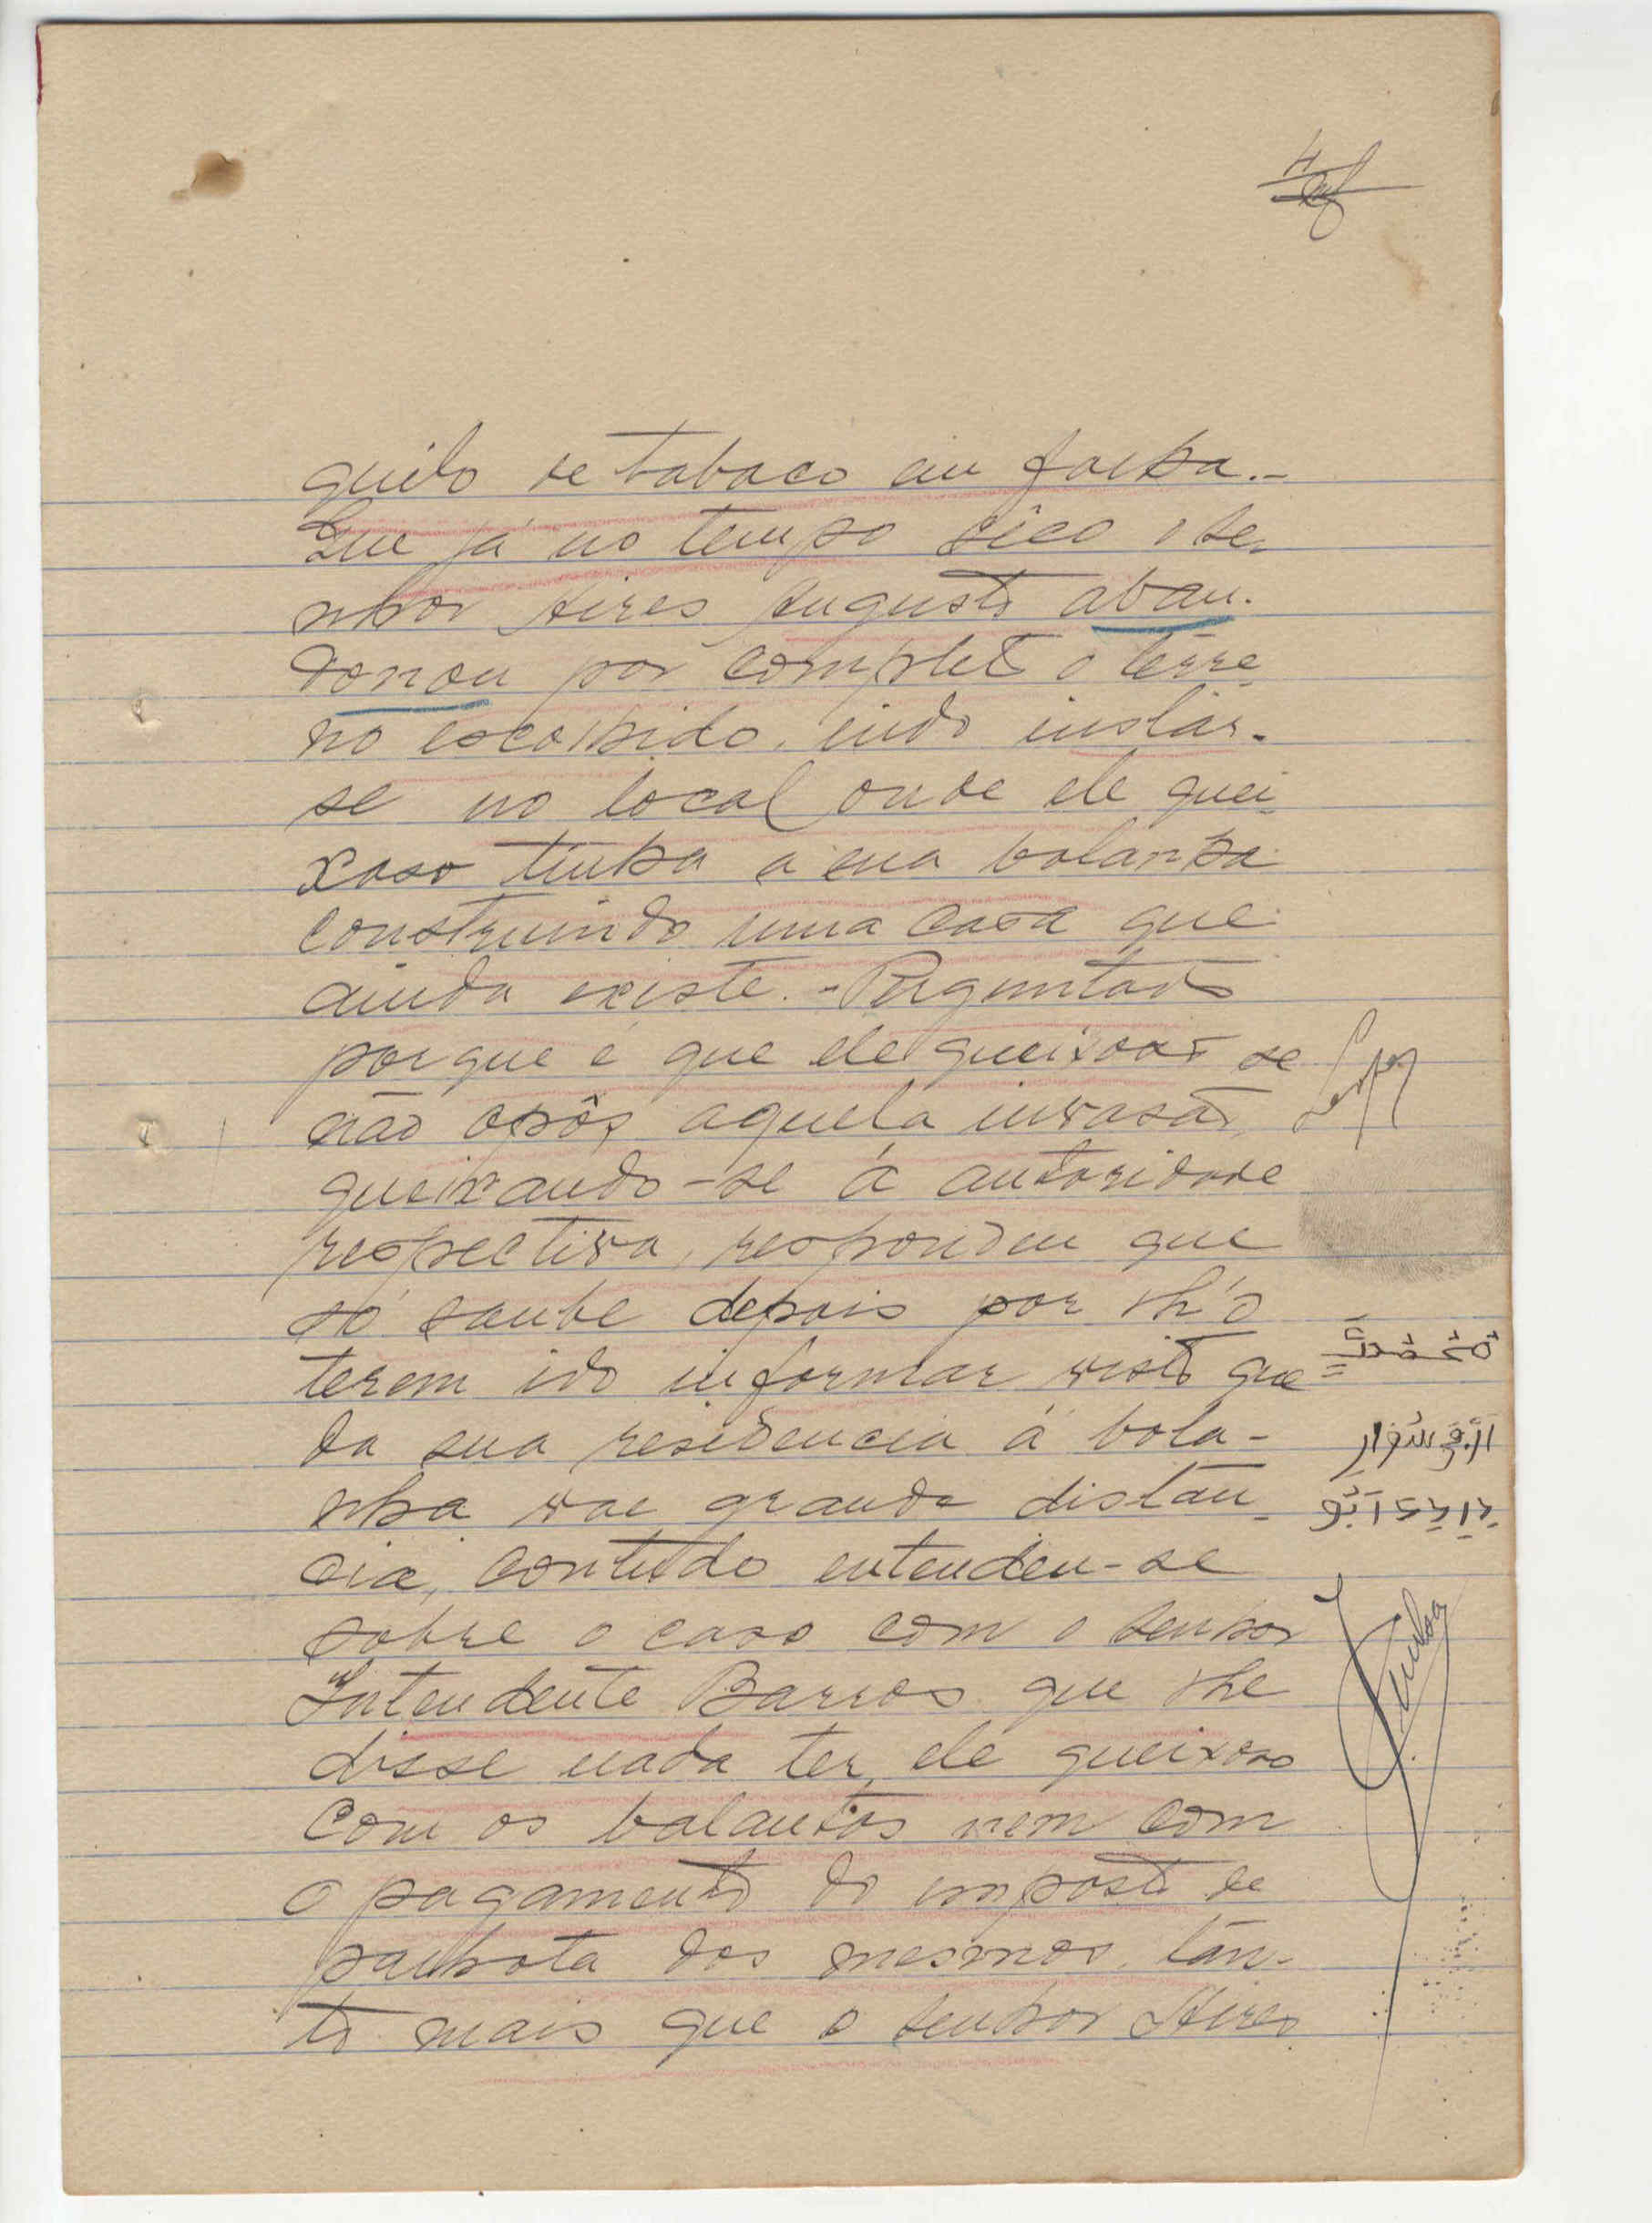 4
quilo de tabaco em folha.-
Que já no tempo sêco o se-
nhor Aires Augusto aban-
donou por completo o terre-
no escolhido, indo instar-
se no local onde ele quei-
xoso tinha a sua bolanha
construindo uma casa que
ainda existe.- Perguntado
porque é que ele queixoso se
não opôs aquela invasão,
queixando-se á autoridade
respectiva, respondeu que
só soube depois por lh'o
terem ido informar visto que
da sua residencia á bola-
nha vae grande distan-
cia, contudo entendeu-se
sobre o caso com o senhor
Intendente Barros que lhe
disse nada ter ele queixoso
com os balantas nem com
o pagamento do imposto de
palhota dos mesmos, tan-
to mais que o senhor Aires